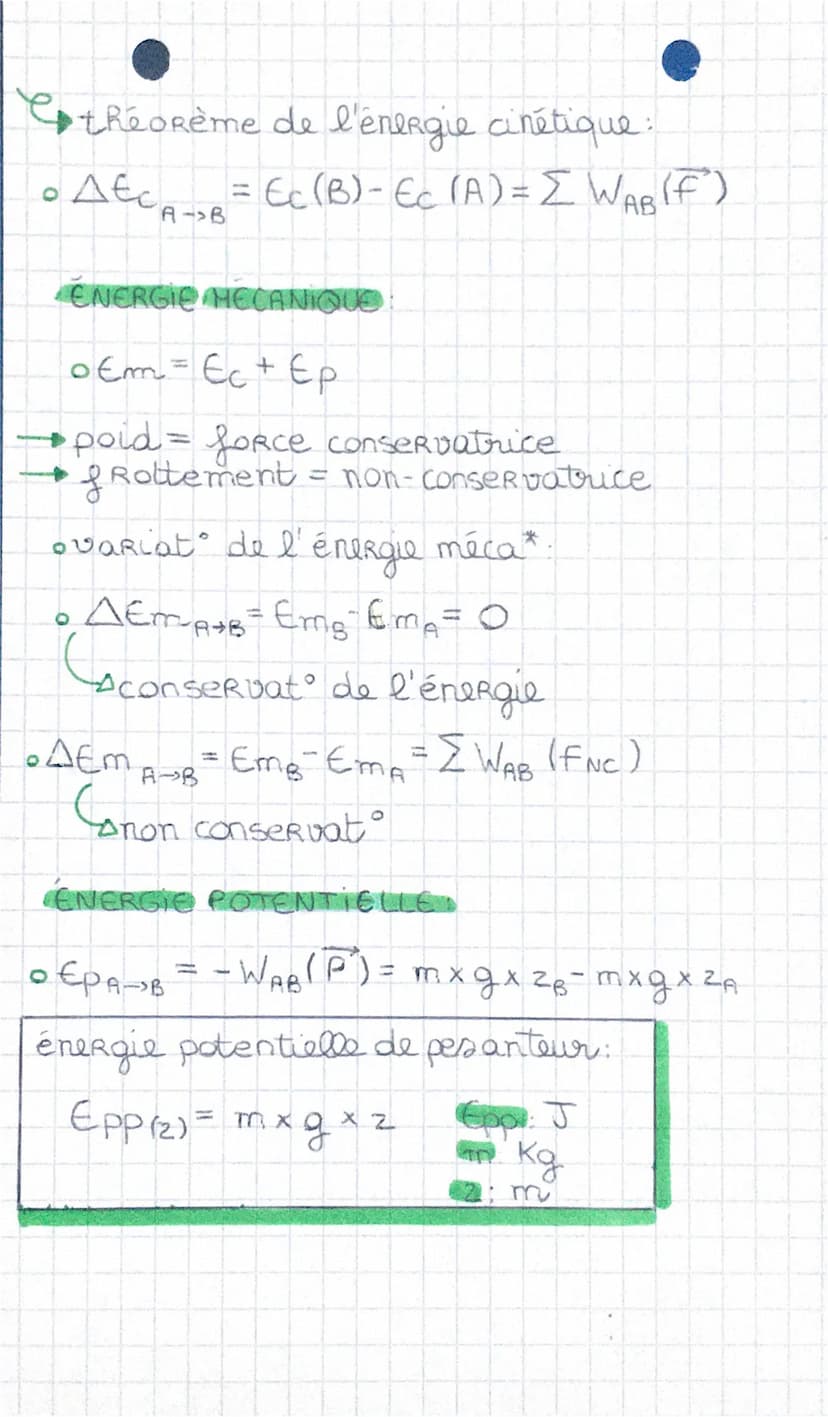 ↳ théorème de l'énergie cinétique:
∘ ΔEc A→B = Ec(B) - Ec(A) = Σ WAB(F⃗)
ÉNERGIE MÉCANIQUE:
∘ Em = Ec + Ep
→ poid = force conservatrice
→ frottement = non-conservatrice
∘ variat° de l'énergie méca*:
∘ ΔEm A→B = EmB - EmA = 0
↳ conservat° de l'énergie
∘ ΔEm A→B = EmB - EmA = Σ WAB (FNC)
↳ non conservat°
ÉNERGIE POTENTIELLE:
∘ Ep A→B = - WAB(P⃗) = m x g x zB - m x g x zA
énergie potentielle de pesanteur:
Epp(z) = m x g x z
Epp: J
m: Kg
z: m